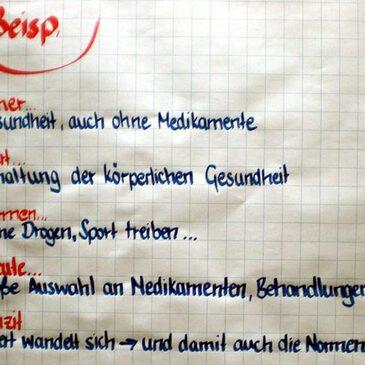 Beisp.
sundheit, auch ohne Medikamente
haltung der körperlichen Gesundheit
ne Drogen, Sport treiben...
ße Auswahl an Medikamenten, Behandlungen
ert wandelt sich → und damit auch die Normen